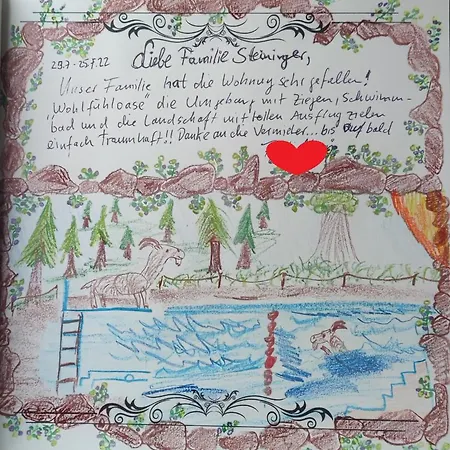 Liebe Familie Steininger,
29.7 - 25.7.22
Unser Familie hat die Wohnung sehr gefallen!
"Wohlfühloase" die Umgebung mit Ziegen, Schwimm-
bad und die Landschaft mit tollen Ausflugzielen
einfach traumhaft!! Danke an die Vermieter... bis auf bald